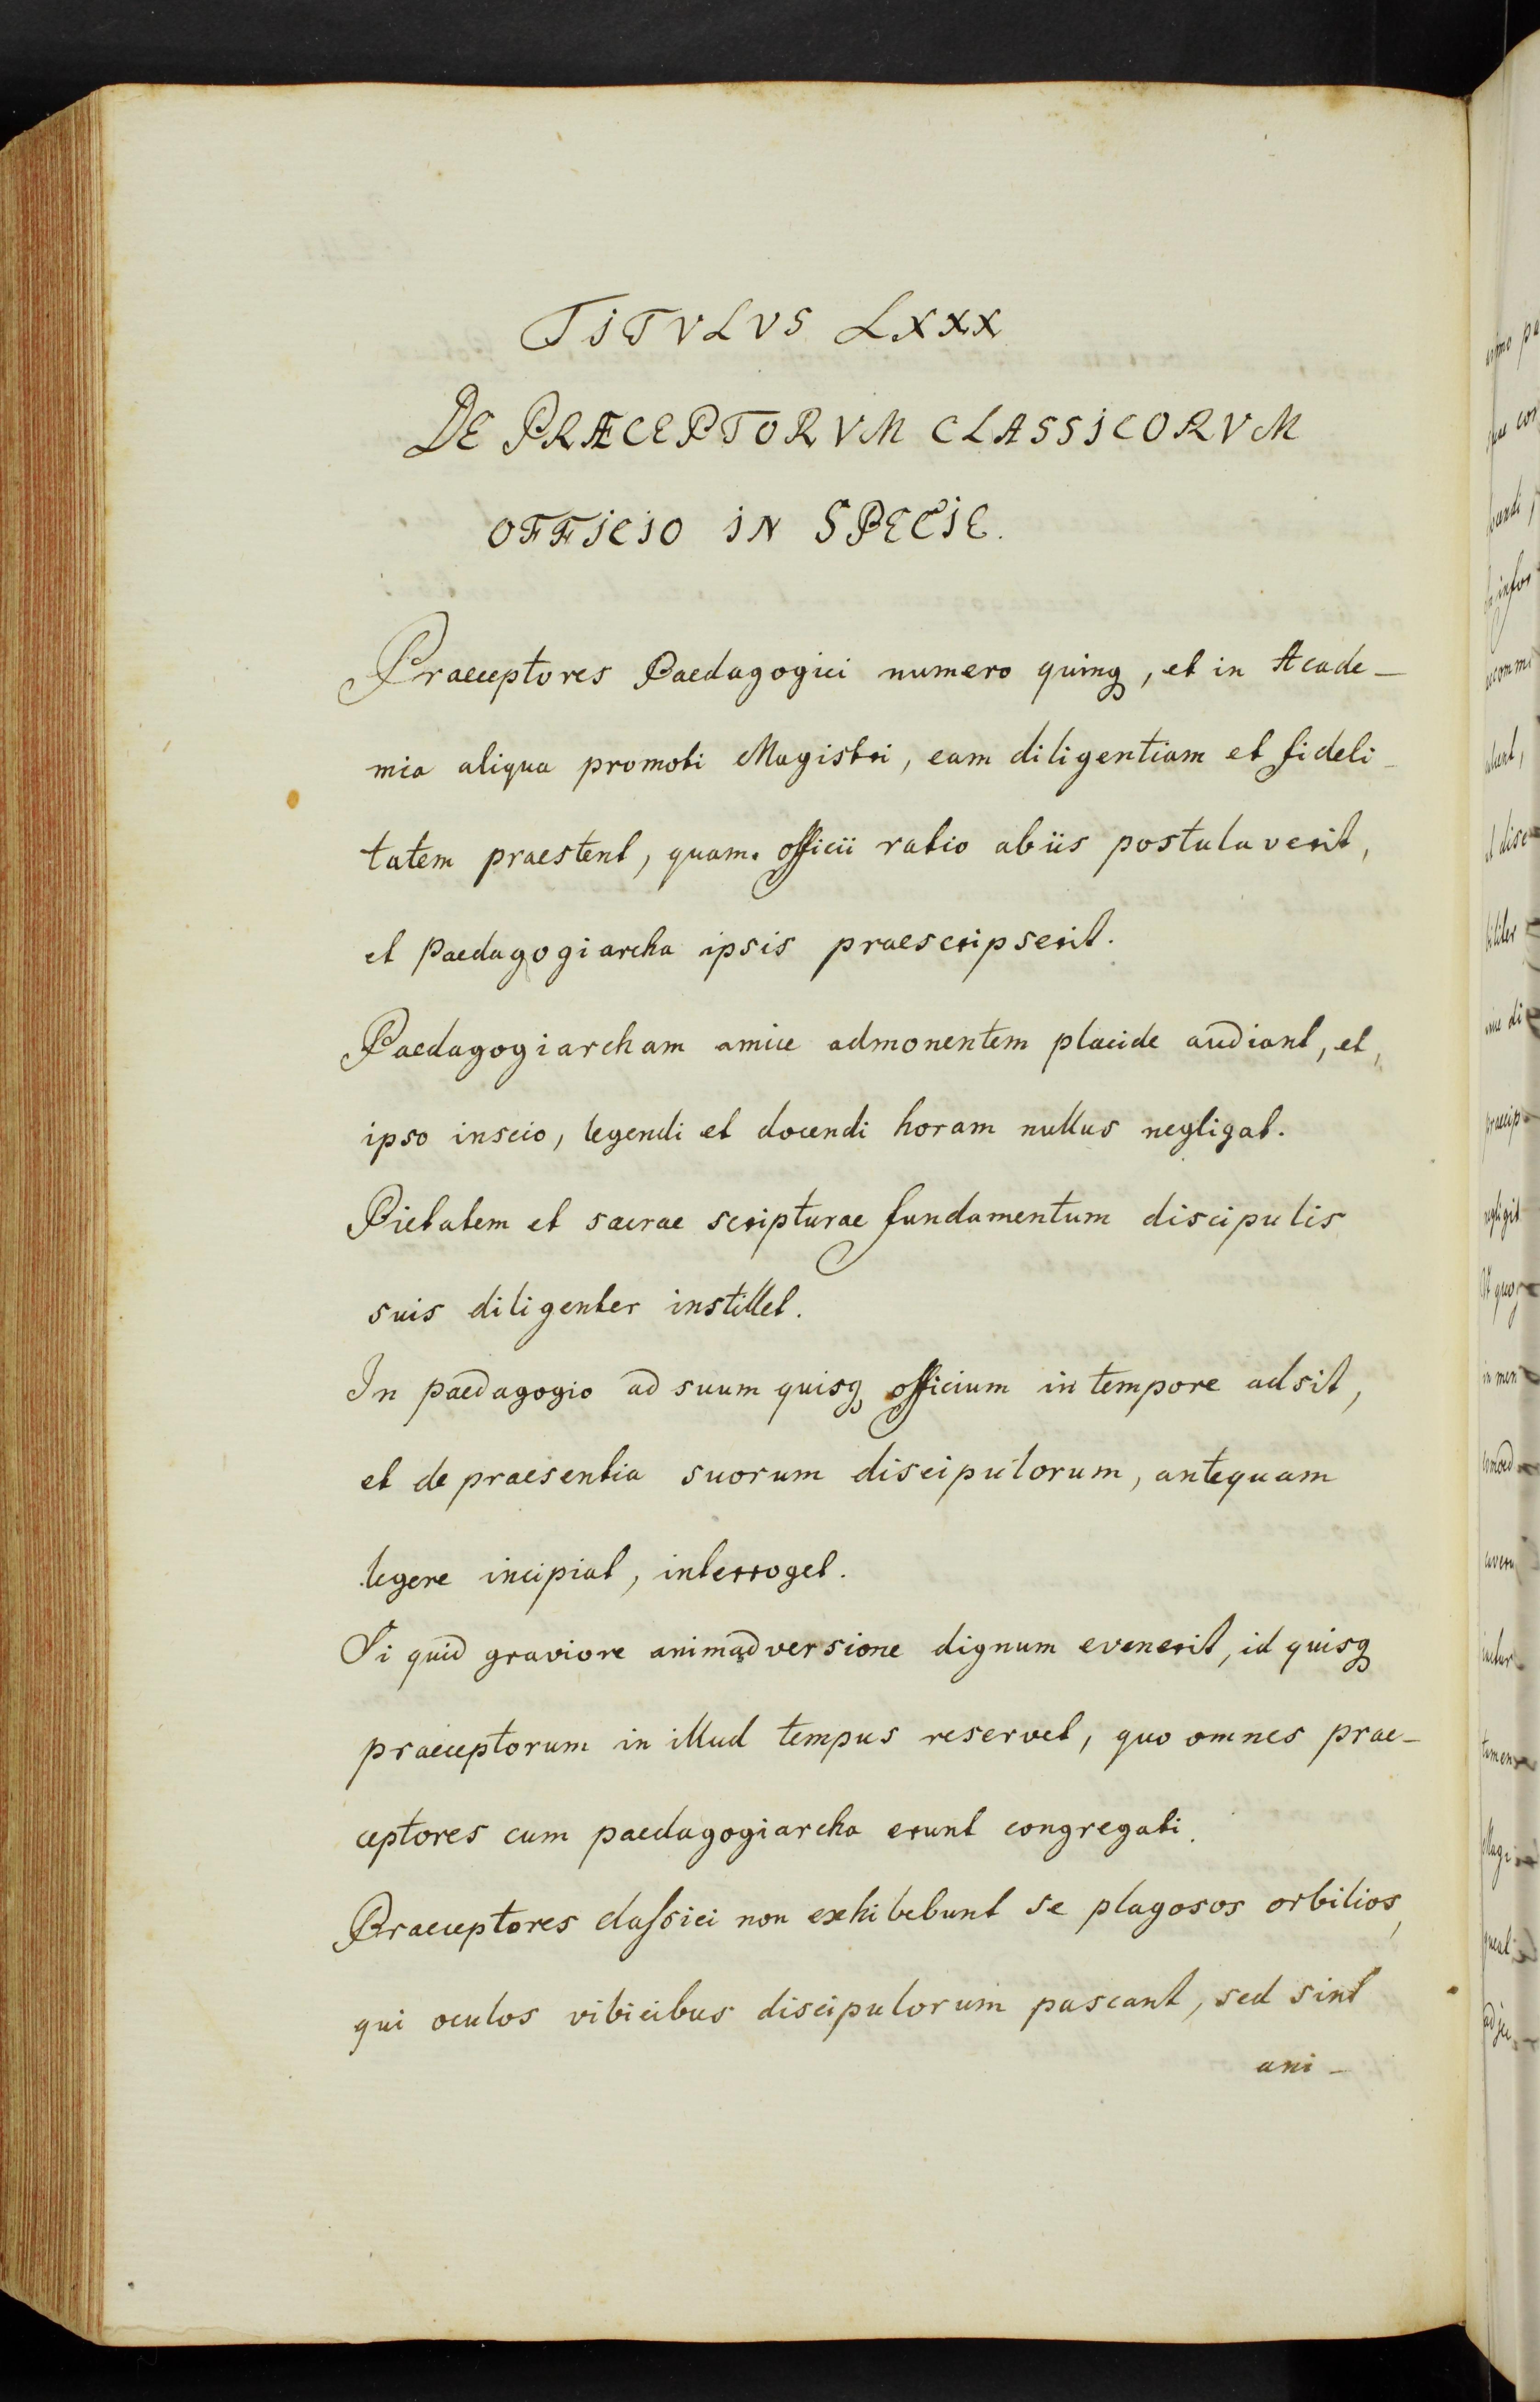 TITVLVS LXXX
DE PRÆCEPTORVM CLASSICORVM
OFFICIO IN SPECIE.
Praeceptores Paedagogici numero quinq, et in Acade-
mia aliqua promoti Magistri, eam diligentiam et fideli-
tatem praestent, quam officii ratio abiis postulaverit,
et Paedagogiarcha ipsis praescripserit.
Paedagogiarcham amice admonentem placide audiant, et,
ipso inscio, legendi et docendi horam nullus negligat.
Pietatem et sacrae scripturae fundamentum discipulis
suis diligenter instillet.
In paedagogio ad suum quisq officium in tempore adsit,
et de praesentia suorum discipulorum, antequam
legere incipiat, interroget.
Si quid graviore animadversione dignum evenerit, id quisq
praeceptorum in illud tempus reservet, quo omnes prae-
ceptores cum paedagogiarcha erunt congregati.
Praeceptores claſsici non exhibebunt se plagosos orbilios,
qui oculos vibicibus discipulorum pascant, sed sint
ani-